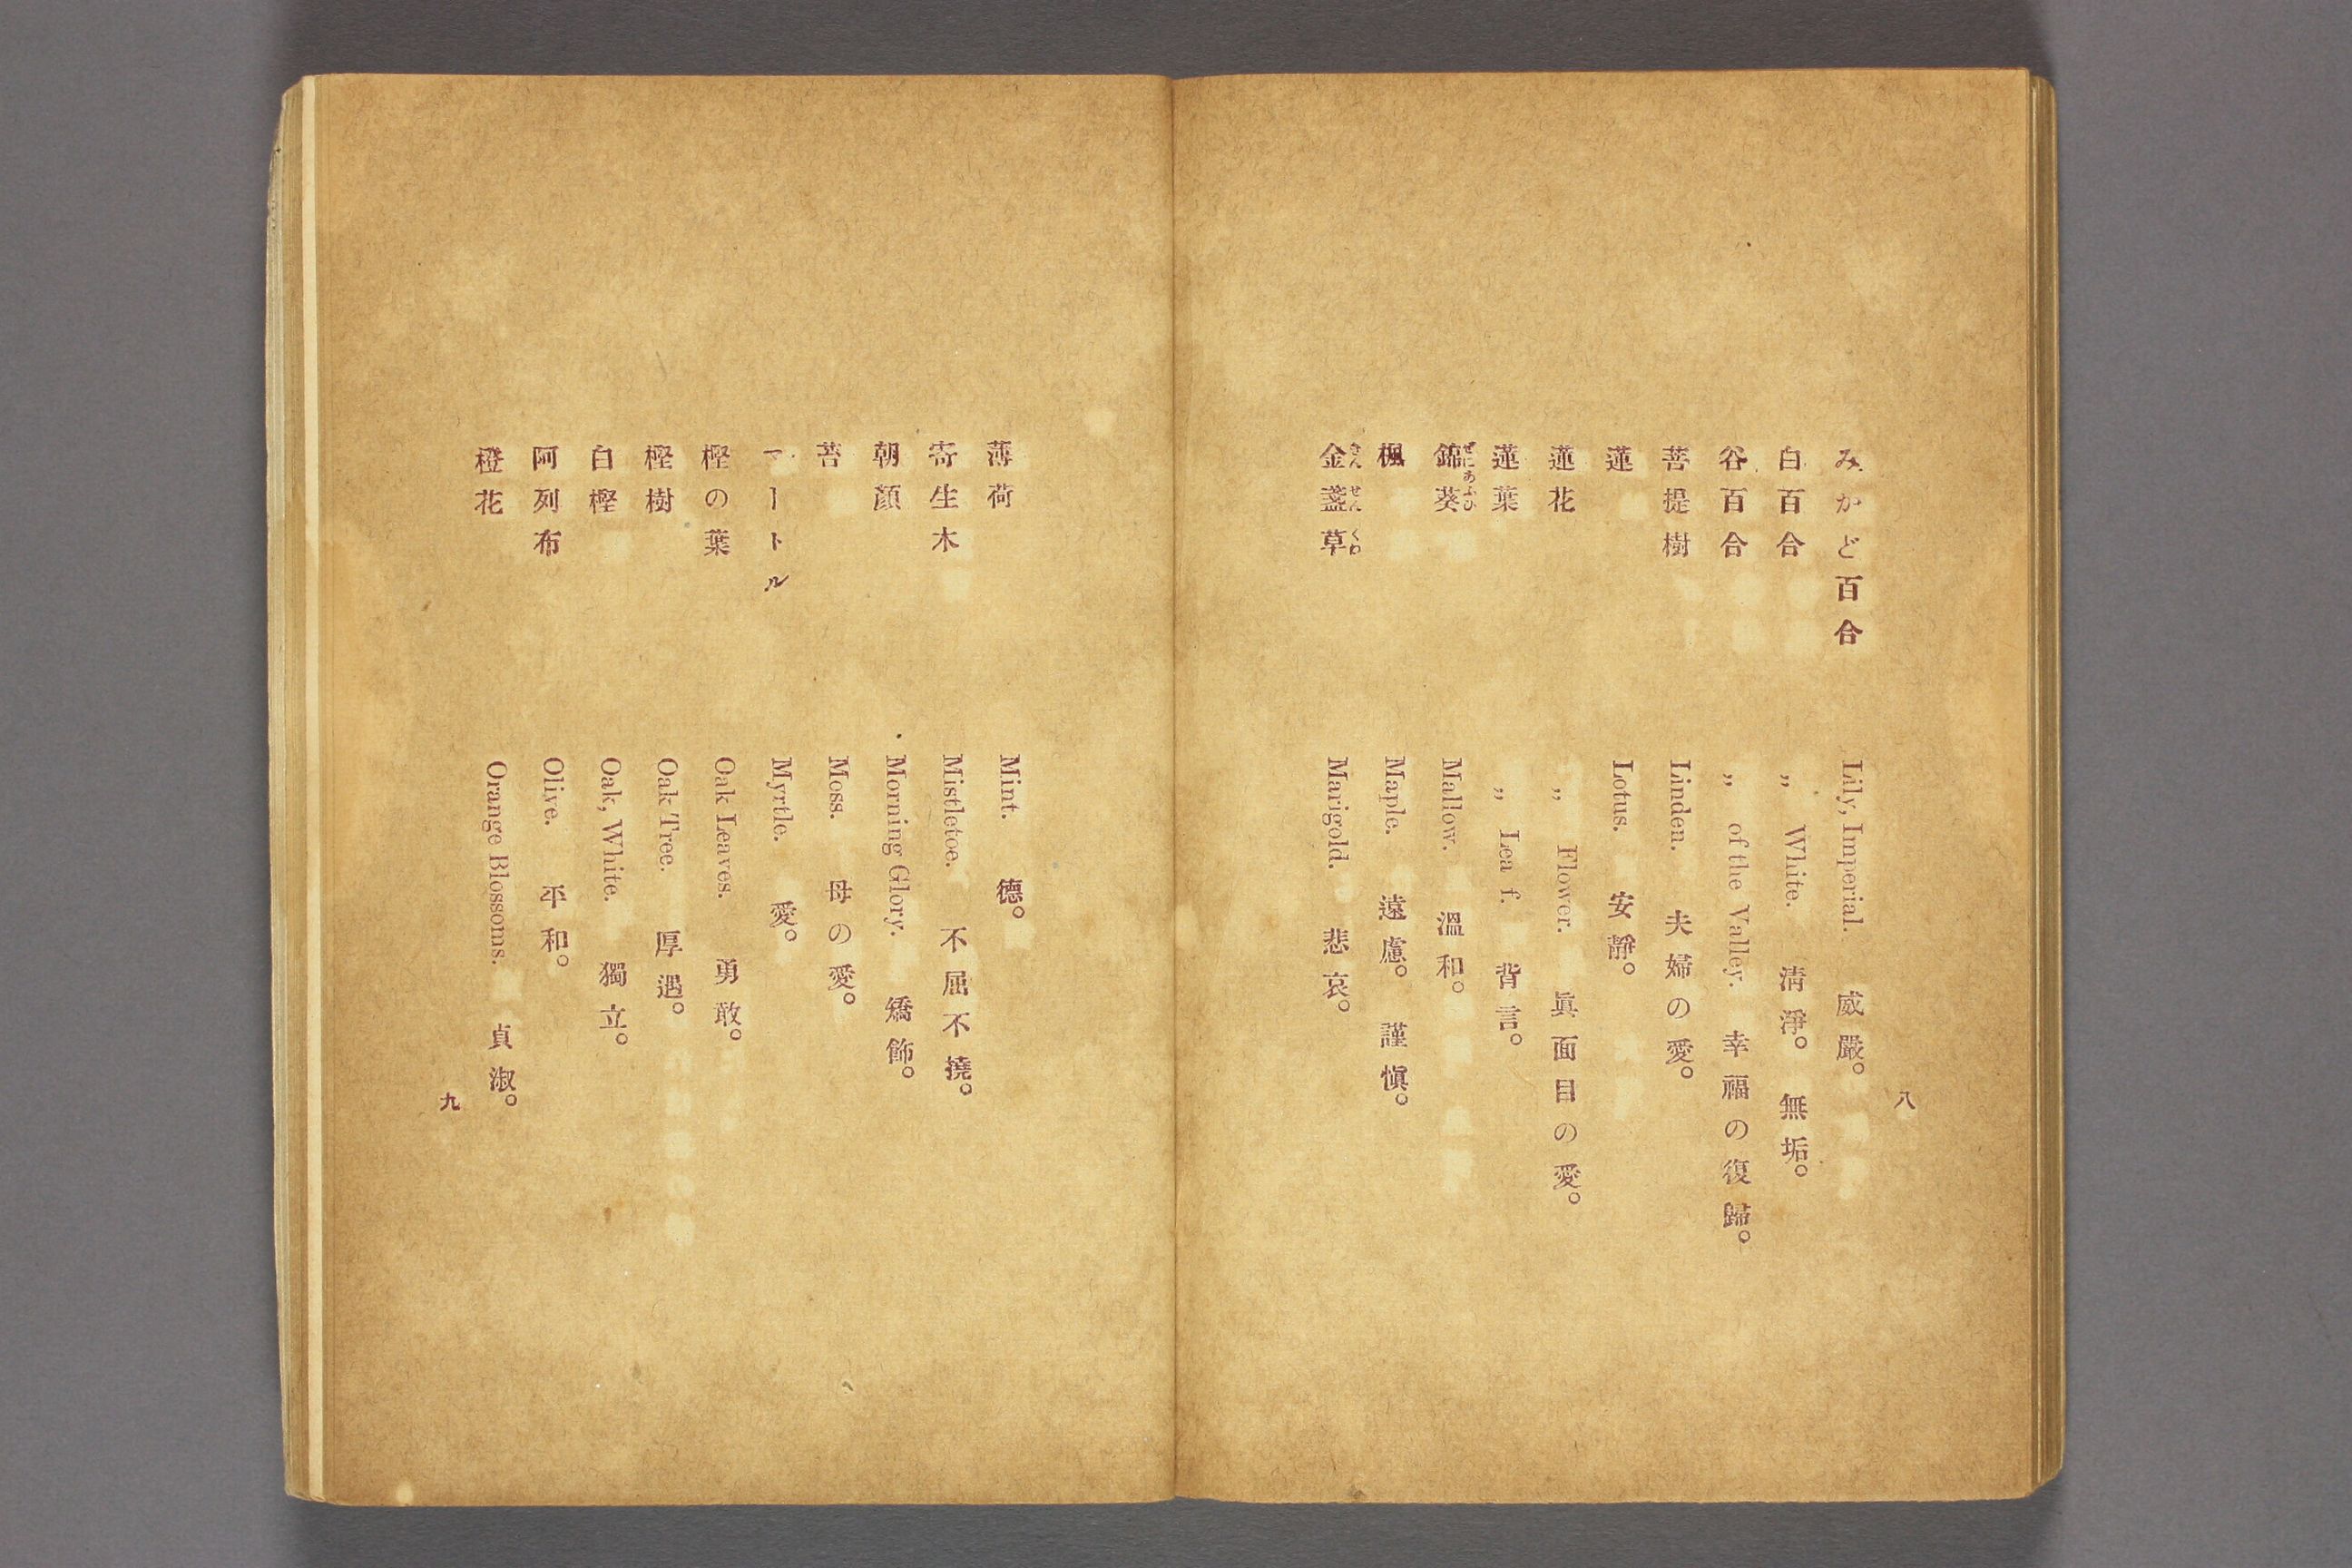 みかど百合 Lily, Imperial. 威嚴。
白百合 〃 White. 淸淨。無垢。
谷百合 〃 of the Valley. 幸福の復歸。
菩提樹 Linden. 夫婦の愛。
蓮 Lotus. 安靜。
蓮花 〃 Flower. 眞面目の愛。
蓮葉 〃 Lea f. 背言。
錦葵 Mallow. 溫和。
ぜにあふひ
楓 Maple. 遠慮。謹愼。
金盞草 Marigold. 悲哀。
きんせんくわ
八
薄荷 Mint. 德。
寄生木 Mistletoe. 不屈不撓。
朝顏 Morning Glory. 矯飾。
苔 Moss. 母の愛。
マートル Myrtle. 愛。
樫の葉 Oak Leaves. 勇敢。
樫樹 Oak Tree. 厚遇。
白樫 Oak, White. 獨立。
阿列布 Olive. 平和。
橙花 Orange Blossoms. 貞淑。
九